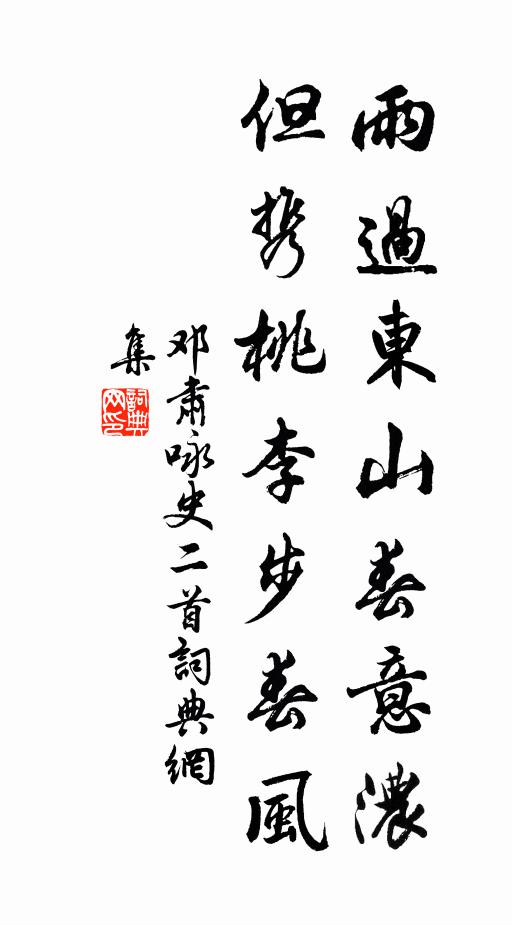 雨過東山春意濃
但携桃李步春風
邓肅咏史二首詞典網
集
詞典
网印